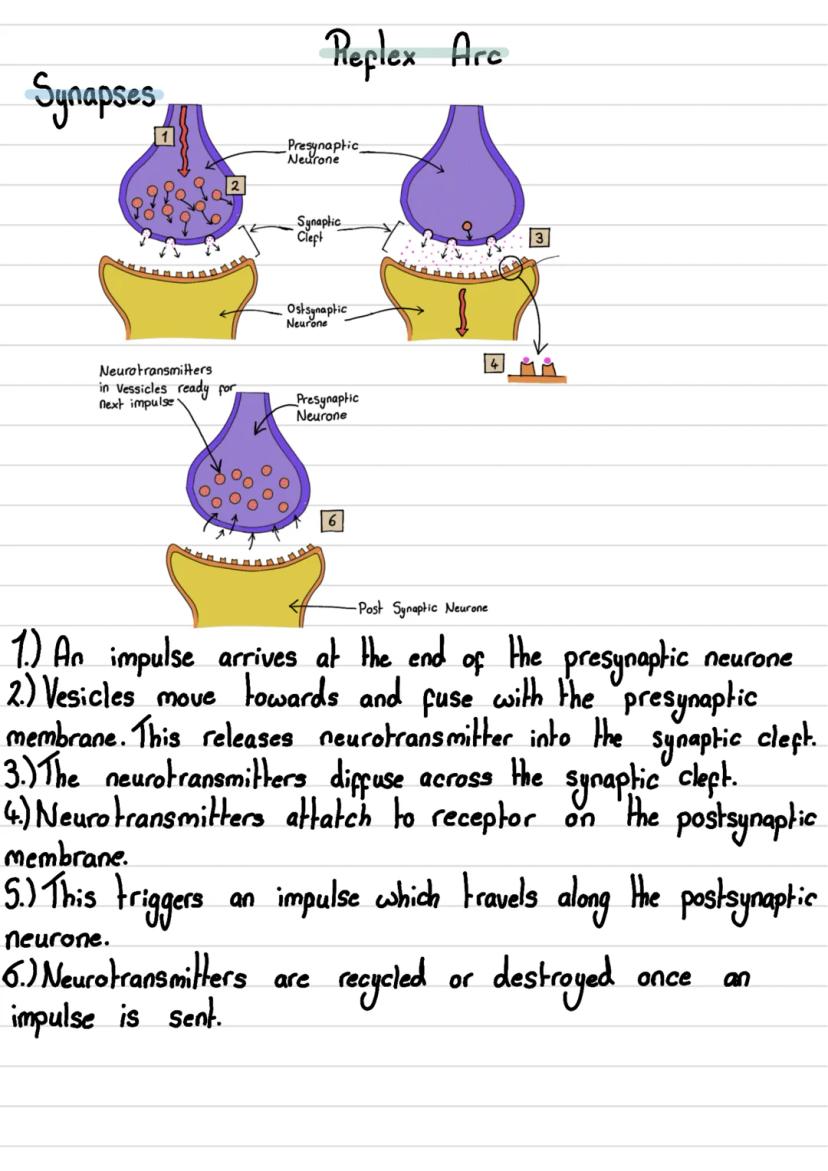 Reflex Arc
Synapses
1
Presynaptic
Neurone
2
Synaptic
Cleft
3
Ostsynaptic
Neurone
4
Neurotransmitters
in Vessicles ready for
next impulse
Presynaptic
Neurone
6
Post Synaptic Neurone
1.) An impulse arrives at the end of the presynaptic neurone
2.) Vesicles move towards and fuse with the presynaptic
membrane. This releases neurotransmitter into the synaptic cleft.
3.) The neurotransmitters diffuse across the synaptic cleft.
4.) Neurotransmitters attatch to receptor on the postsynaptic
membrane.
5.) This triggers an impulse which travels along the postsynaptic
neurone.
6.) Neurotransmitters are recycled or destroyed once an
impulse is sent.